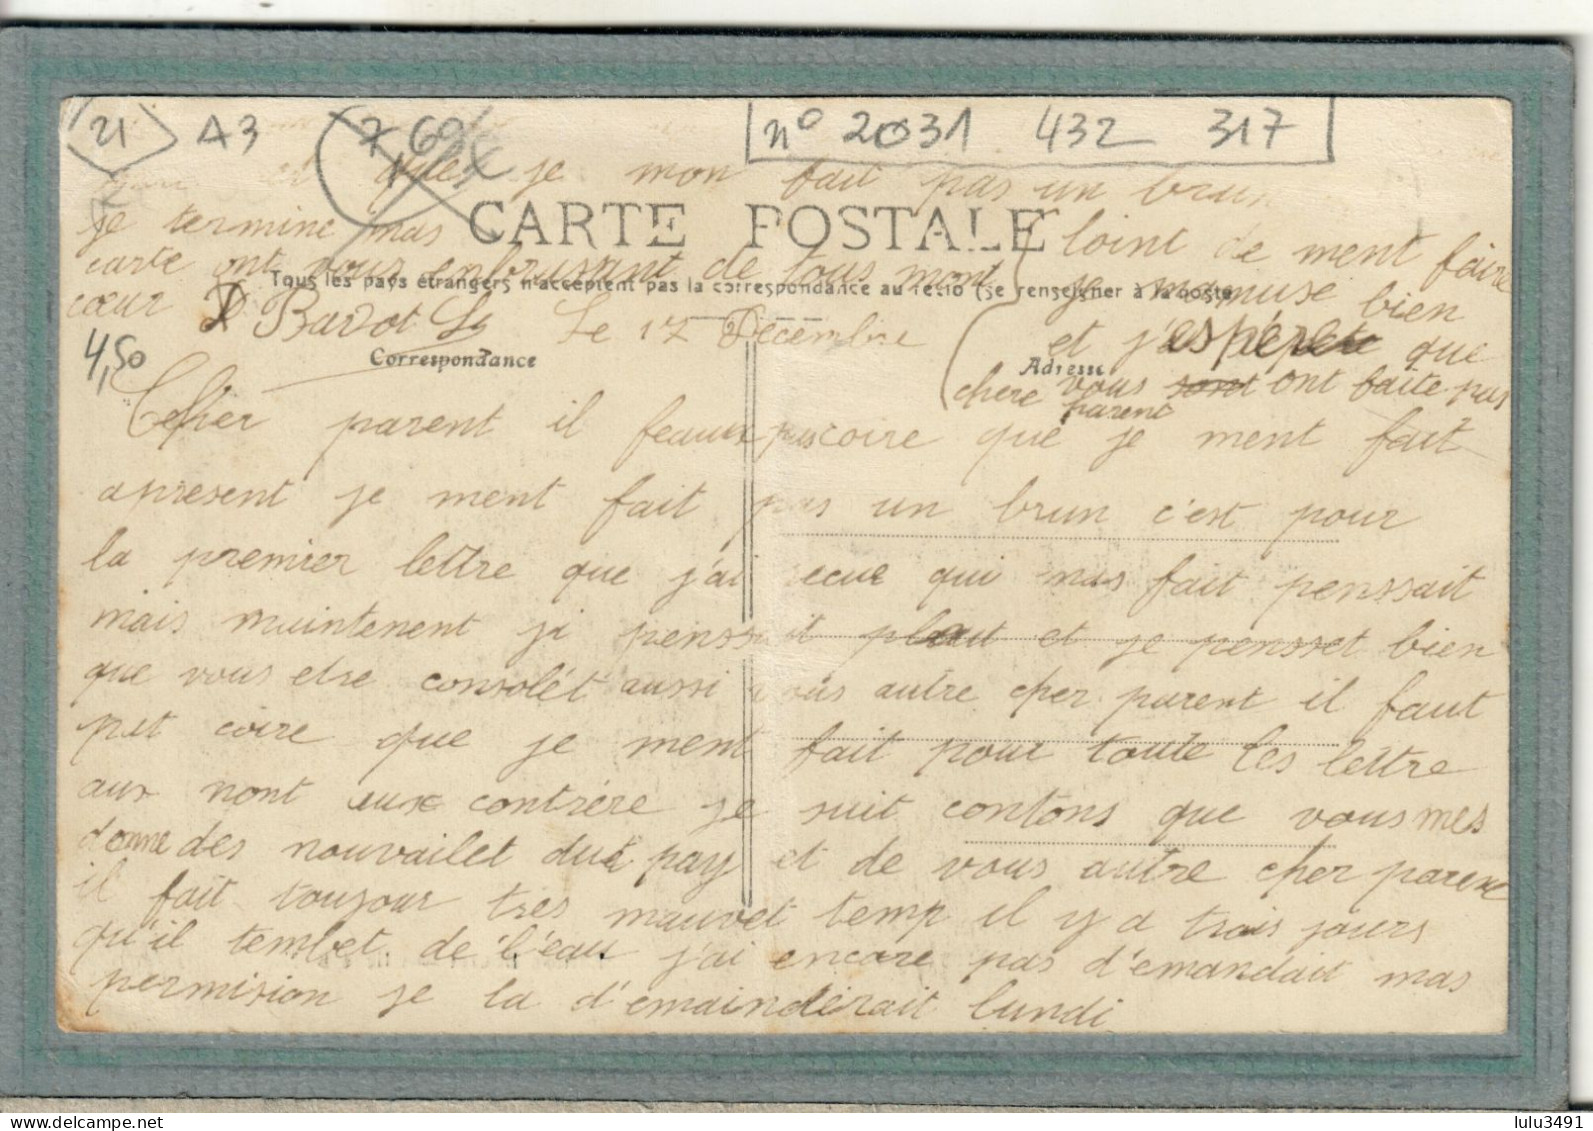 21 A3 760 n° 2031 432 317
que je mon fait pas un brun
je termine mas
CARTE POSTALE
loint de ment faire
carte ont vous enbrasant de tous mont
je mamuse bien
Tous les pays étrangers n'acceptent pas la correspondance au recto (se renseigner à la poste
cœur Bardot Le 17 Décembre
et j'espére que
4,50
Correspondance
Adresse
chere vous sont ont faite pas
parent
Cher parent il feaux pas coire que je ment fait
apresent je ment fait pas un brun c'est pour
la premier lettre que j'ai recue qui mas fait penssait
mais maintenent ji penssait plau et je pensset bien
que vous etre consolét aussi vous autre cher parent il faut
pat coire que je ment fait pour toute les lettre
aux nont eux contrére je suit contons que vous mes
donne des nouvailet dué pay et de vous autre cher parent
il fait toujour tres mauvet temp il y a trois jours
qu'il tembet de l'eau j'ai encore pas d'emandait mas
permision je la d'emainderait lundi
lulu3491